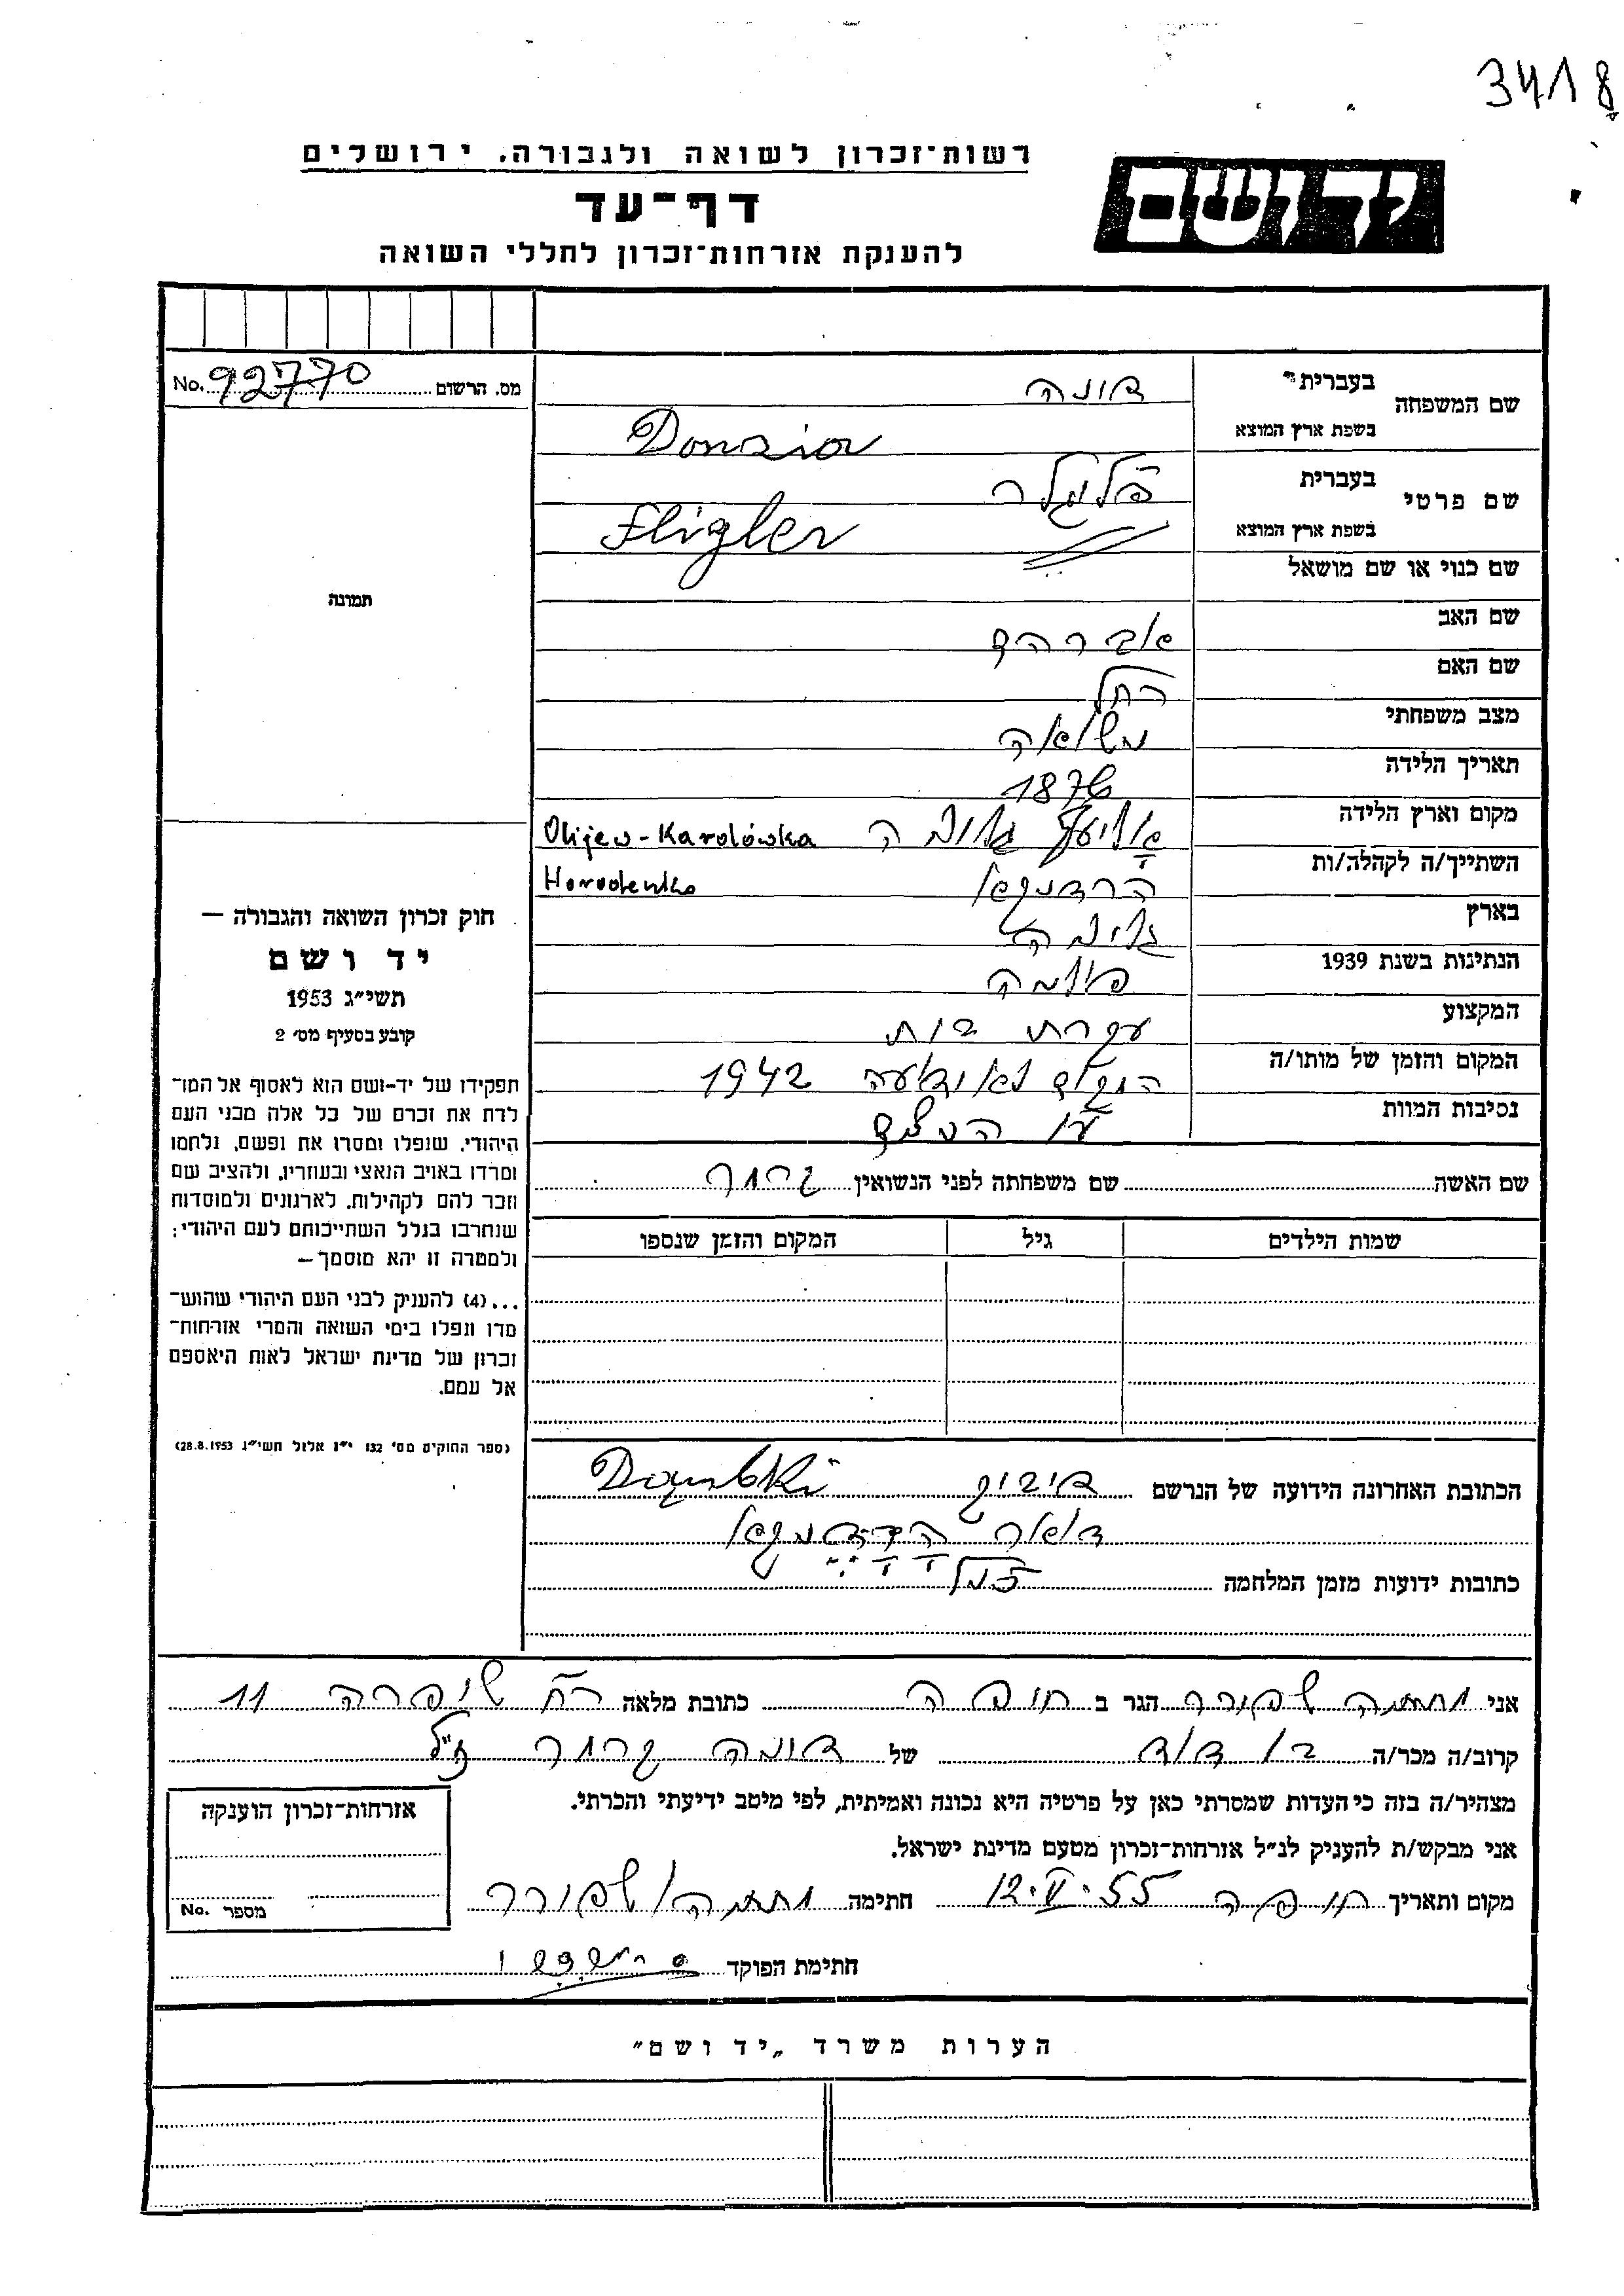 3418
רשות־זכרון לשואה ולגבורה, ירושלים
דף־עד
להענקת אזרחות־זכרון לחללי השואה
יד ושם
מס. הרשום No. 92770
שם המשפחה
בעברית דונה
בשפת ארץ המוצא Donsia
שם פרטי
בעברית פליגלר
בשפת ארץ המוצא Fligler
שם כנוי או שם מושאל
שם האב אברהם
שם האם רחל
מצב משפחתי נשואה
תאריך הלידה 1876
מקום וארץ הלידה Olijew-Karolówka
השתייך/ה לקהלה/ות Horodenka
בארץ גליציה
הנתינות בשנת 1939 פולניה
המקצוע עקרת בית
המקום והזמן של מותו/ה המקום לא ידוע 1942
נסיבות המוות
שם האשה שם משפחתה לפני הנשואין
שמות הילדים גיל המקום והזמן שנספו
הכתובת האחרונה הידועה של הנרשם
דואר
כתובות ידועות מזמן המלחמה כנ״ל
תמונה
חוק זכרון השואה והגבורה —
יד ושם
תשי״ג 1953
קובע בסעיף מס׳ 2
תפקידו של יד-ושם הוא לאסוף אל המו־
לדת את זכרם של כל אלה מבני העם
היהודי, שנפלו ומסרו את נפשם, נלחמו
ומרדו באויב הנאצי ובעוזריו, ולהציב שם
וזכר להם לקהילות, לארגונים ולמוסדות
שנחרבו בגלל השתייכותם לעם היהודי;
ולמטרה זו יהא מוסמך—
...(4) להעניק לבני העם היהודי שהוש־
מדו ונפלו בימי השואה והמרי אזרחות־
זכרון של מדינת ישראל לאות היאספם
אל עמם.
(ספר החוקים מס׳ 132 י״ז אלול תשי״ג 28.8.1953)
אני הגר ב חיפה כתובת מלאה רח׳ שיפרה 11
קרוב/ה מכר/ה בן דוד של דונה ז״ל
מצהיר/ה בזה כי העדות שמסרתי כאן על פרטיה היא נכונה ואמיתית, לפי מיטב ידיעתי והכרתי.
אני מבקש/ת להעניק לנ״ל אזרחות־זכרון מטעם מדינת ישראל.
מקום ותאריך חיפה 12.V.55 חתימה
חתימת הפוקד
אזרחות־זכרון הוענקה
מספר No.
הערות משרד „יד ושם״